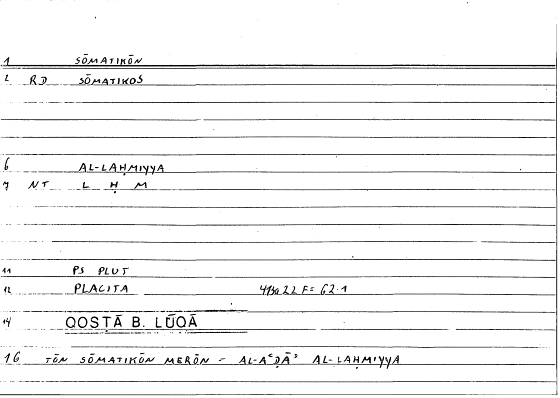 1 SŌMATIKŌN
2 RD SŌMATIKOS
6 AL-LAḤMIYYA
7 NT L Ḥ M
11 PS PLUT
12 PLACITA 419a22 F= 62.1
14 QOSṬĀ B. LŪQĀ
16 TŌN SŌMATIKŌN MERŌN = AL-AʿḌĀʾ AL-LAḤMIYYA